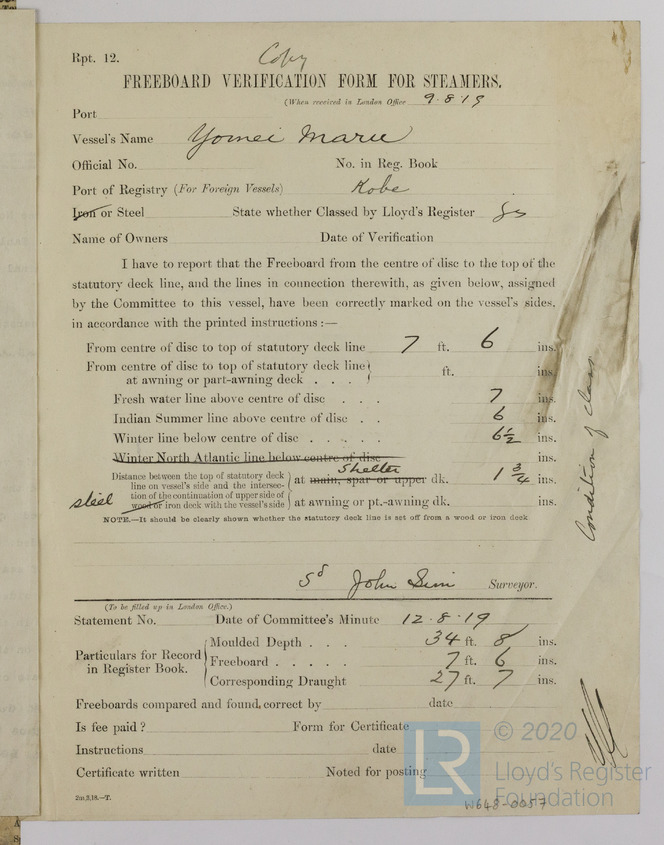 Rpt. 12.
Copy
FREEBOARD VERIFICATION FORM FOR STEAMERS.
(When received in London Office 9.8.19
Port
Vessel's Name Yomei Maru
Official No. No. in Reg. Book
Port of Registry (For Foreign Vessels) Kobe
Iron or Steel State whether Classed by Lloyd's Register Yes
Name of Owners Date of Verification
I have to report that the Freeboard from the centre of disc to the top of the
statutory deck line, and the lines in connection therewith, as given below, assigned
by the Committee to this vessel, have been correctly marked on the vessel's sides,
in accordance with the printed instructions :—
From centre of disc to top of statutory deck line 7 ft. 6 ins.
From centre of disc to top of statutory deck line
at awning or part-awning deck . . . ft. ins.
Fresh water line above centre of disc . . . 7 ins.
Indian Summer line above centre of disc . . 6 ins.
Winter line below centre of disc . . . . . 6½ ins.
Winter North Atlantic line below centre of disc ins.
Shelter
Distance between the top of statutory deck
line on vessel's side and the intersec- at main, spar or upper dk. 1¾ ins.
tion of the continuation of upper side of
steel wood or iron deck with the vessel's side at awning or pt.-awning dk. ins.
NOTE.—It should be clearly shown whether the statutory deck line is set off from a wood or iron deck
Condition of class
Sd John Sim Surveyor.
(To be filled up in London Office.)
Statement No. Date of Committee's Minute 12.8.19
Particulars for Record in Register Book.
Moulded Depth . . . 34 ft. 8 ins.
Freeboard . . . . . 7 ft. 6 ins.
Corresponding Draught 27 ft. 7 ins.
Freeboards compared and found correct by date
Is fee paid ? Form for Certificate
Instructions date
Certificate written Noted for posting
2m,3,18.—T.
LR © 2020
Lloyd's Register
Foundation
W648-0057